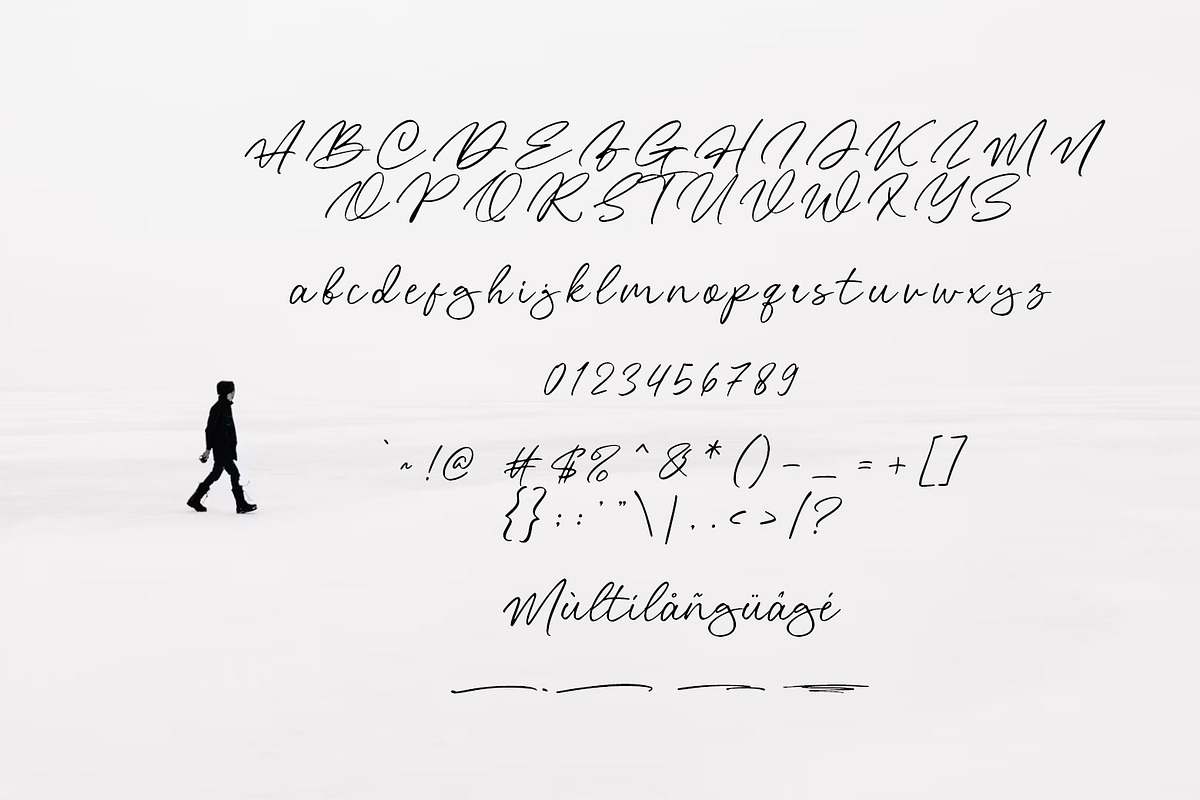 A B C D E F G H I J K L M N
O P Q R S T U V W X Y Z
a b c d e f g h i j k l m n o p q r s t u v w x y z
0 1 2 3 4 5 6 7 8 9
` ~ ! @ # $ % ^ & * ( ) - _ = + [ ]
{ } ; : ' " \ | , . < > / ?
Mùltílåñgüâgé